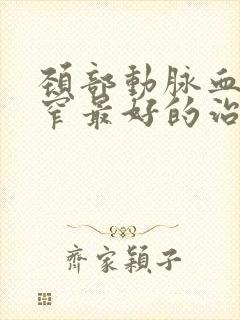 頸部動脉血
窄最好的治
齊家穎子